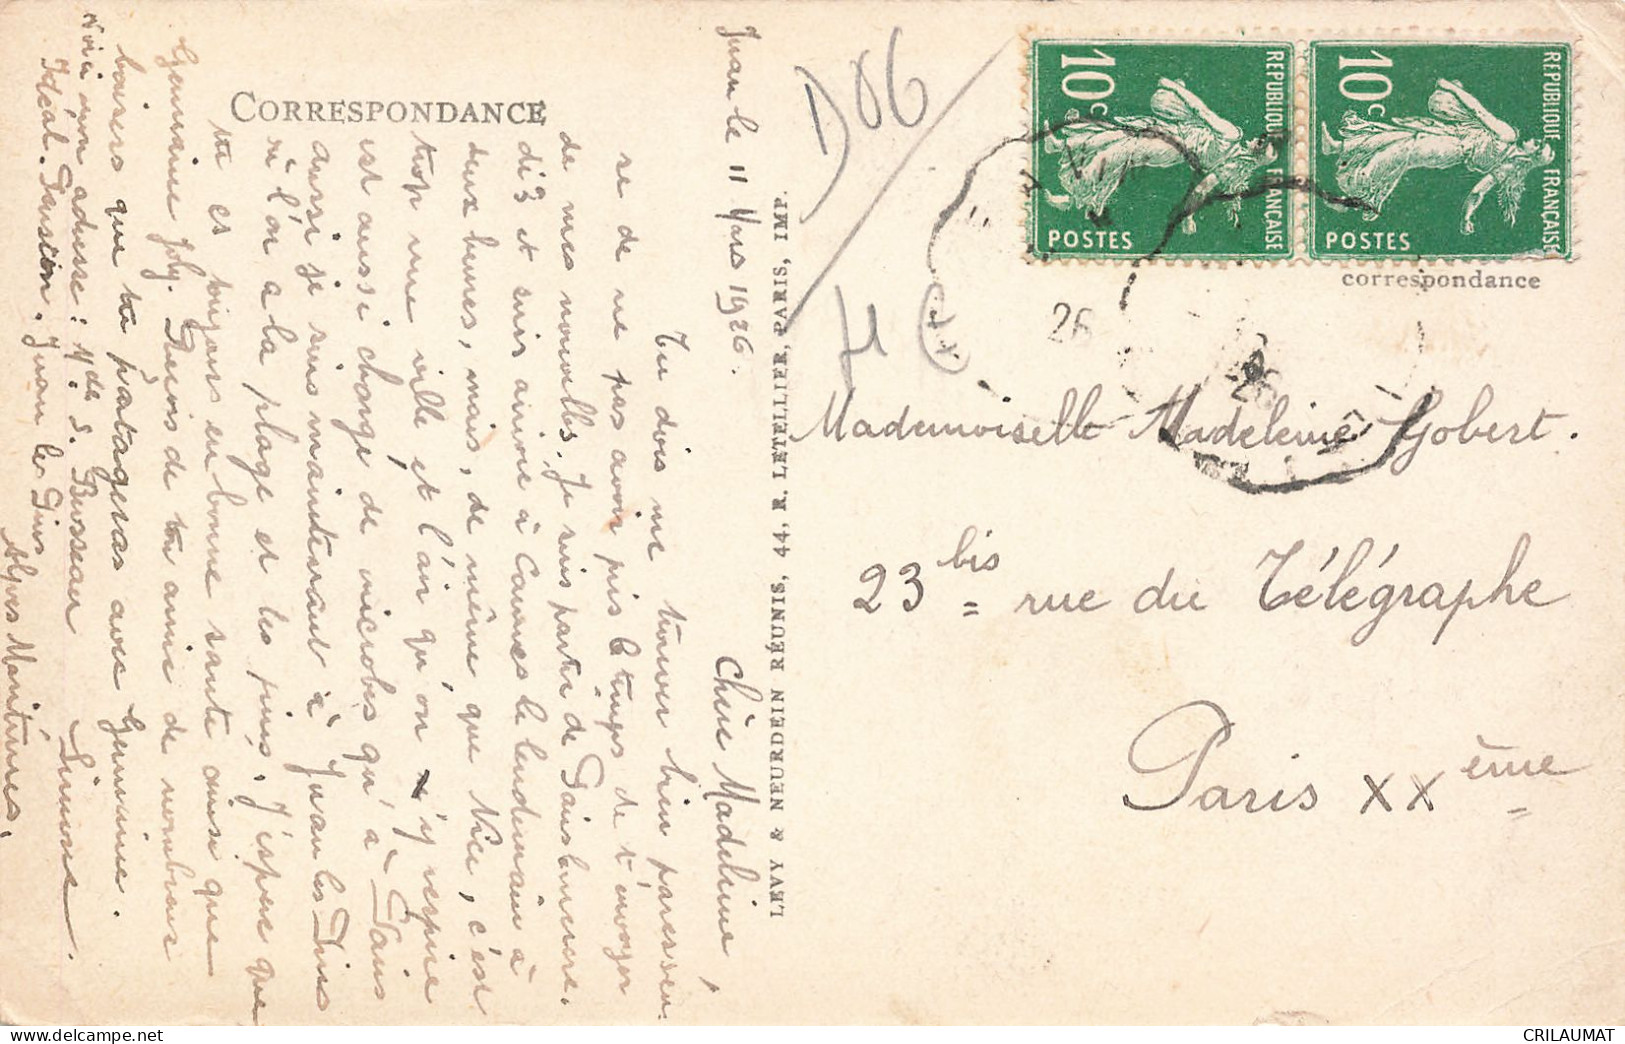 CORRESPONDANCE
Juan le 11 Mars 1926.
Chère Madeleine,
Tu dois me trouver bien paresseu-
se de ne pas avoir pris le temps de t'envoyer
de mes nouvelles. Je suis partie de Paris
di 3 et suis arrivée à Cannes le lendemain à
deux heures, mais, de même que Nice, c'est
trop une ville et l'air qu'on y respire
est aussi chargé de microbes qu'à Paris
aussi je suis maintenant à Juan les Pins
où l'on a la plage et les pins. J'espère que
tu es toujours en bonne santé ainsi que
Germaine Joly. Reçois de ton amie de nombreux
baisers que tu partageras avec Germaine.
Voici mon adresse: Mde S. Brosseau Simone.
Idéal. Pension. Juan les Pins
Alpes Maritimes.
LEVY & NEURDEIN RÉUNIS, 44, R. LETELLIER, PARIS, IMP.
D06
10c
POSTES
REPUBLIQUE FRANÇAISE
10c
POSTES
REPUBLIQUE FRANÇAISE
correspondance
26
Mademoiselle Madeleine Gobert.
23 bis = rue du Télégraphe
Paris XX ème
CRILAUMAT